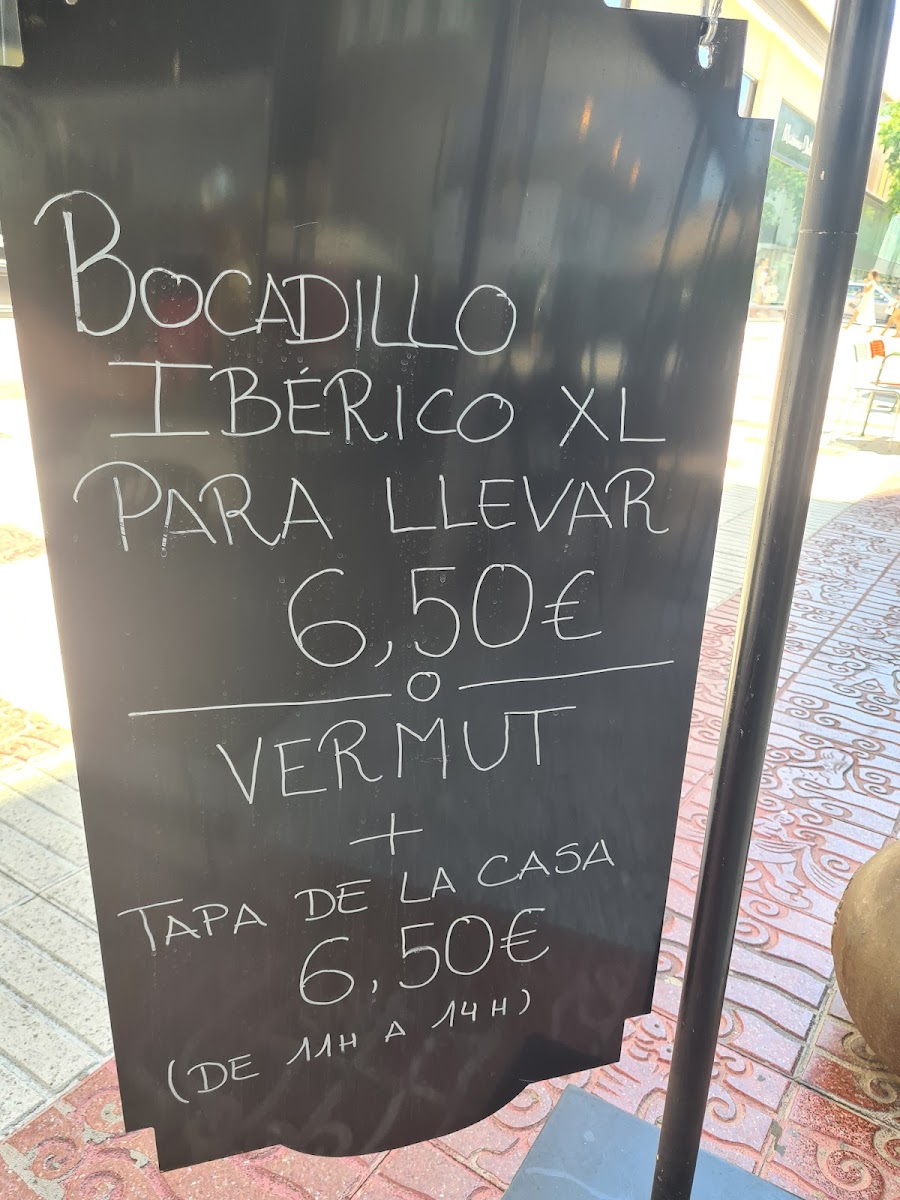 BOCADILLO
IBÉRICO XL
PARA LLEVAR
6,50€
VERMUT
+
TAPA DE LA CASA
6,50€
(DE 11H A 14H)